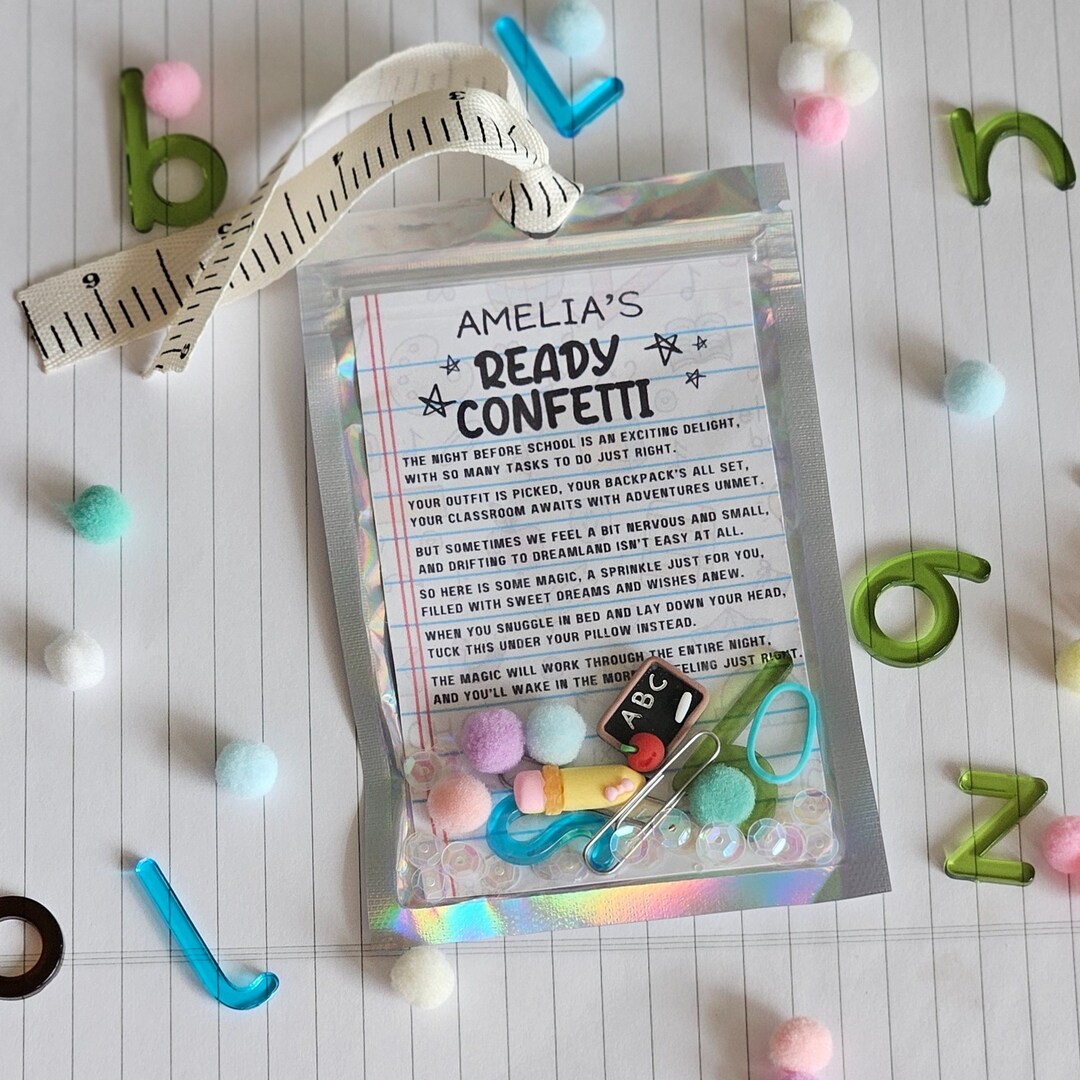 AMELIA'S
READY
CONFETTI
THE NIGHT BEFORE SCHOOL IS AN EXCITING DELIGHT,
WITH SO MANY TASKS TO DO JUST RIGHT.
YOUR OUTFIT IS PICKED, YOUR BACKPACK'S ALL SET,
YOUR CLASSROOM AWAITS WITH ADVENTURES UNMET.
BUT SOMETIMES WE FEEL A BIT NERVOUS AND SMALL,
AND DRIFTING TO DREAMLAND ISN'T EASY AT ALL.
SO HERE IS SOME MAGIC, A SPRINKLE JUST FOR YOU,
FILLED WITH SWEET DREAMS AND WISHES ANEW.
WHEN YOU SNUGGLE IN BED AND LAY DOWN YOUR HEAD,
TUCK THIS UNDER YOUR PILLOW INSTEAD.
THE MAGIC WILL WORK THROUGH THE ENTIRE NIGHT,
AND YOU'LL WAKE IN THE FEELING JUST RIGHT.
ABC
3
4
5
6
b
n
z